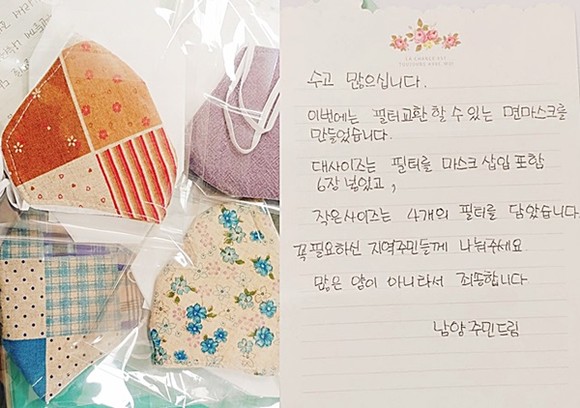 수고 많으십니다.
이번에는 필터교환 할 수 있는 면마스크를
만들었습니다.
대사이즈는 필터를 마스크 삽입 포함
6장 넣었고,
작은사이즈는 4개의 필터를 담았습니다
꼭 필요하신 지역주민들께 나눠주세요
많은 양이 아니라서 죄송합니다
남양 주민드림